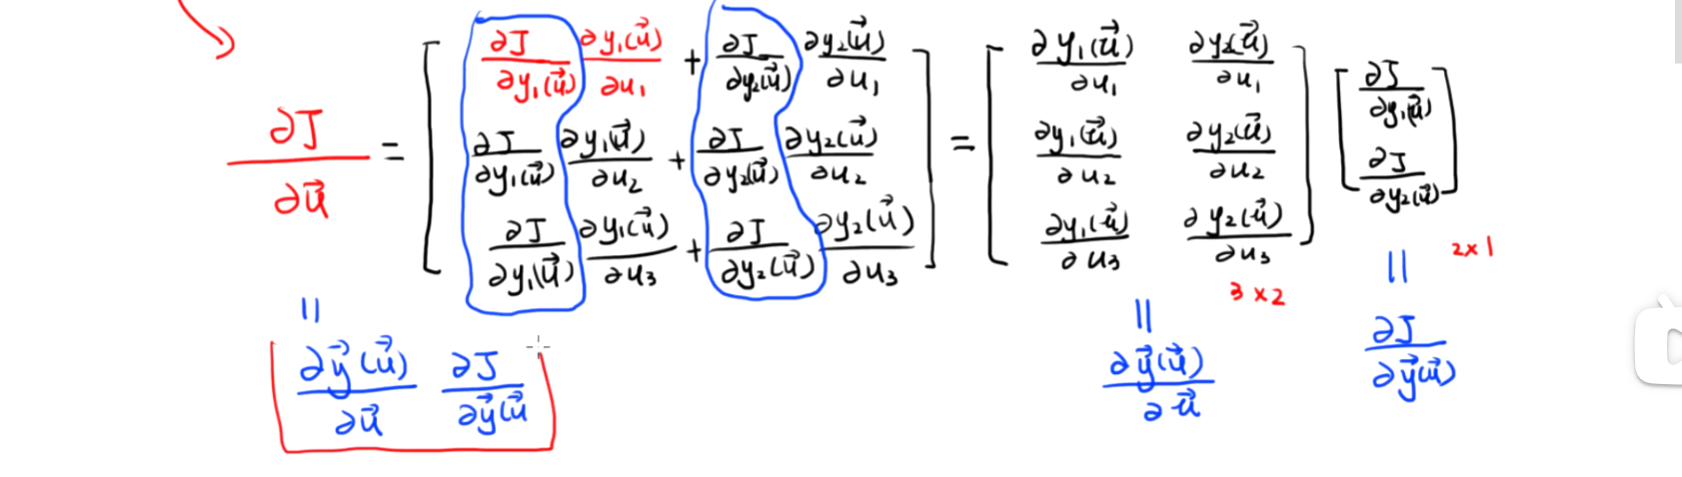 ∂J/∂u⃗ = [ ∂J/∂y₁(u⃗) ∂y₁(u⃗)/∂u₁ + ∂J/∂y₂(u⃗) ∂y₂(u⃗)/∂u₁ ; ∂J/∂y₁(u⃗) ∂y₁(u⃗)/∂u₂ + ∂J/∂y₂(u⃗) ∂y₂(u⃗)/∂u₂ ; ∂J/∂y₁(u⃗) ∂y₁(u⃗)/∂u₃ + ∂J/∂y₂(u⃗) ∂y₂(u⃗)/∂u₃ ] = [ ∂y₁(u⃗)/∂u₁ ∂y₂(u⃗)/∂u₁ ; ∂y₁(u⃗)/∂u₂ ∂y₂(u⃗)/∂u₂ ; ∂y₁(u⃗)/∂u₃ ∂y₂(u⃗)/∂u₃ ] [ ∂J/∂y₁(u⃗) ; ∂J/∂y₂(u⃗) ]
3×2 2×1
= = =
∂y⃗(u⃗)/∂u⃗ ∂J/∂y⃗(u⃗ ∂y⃗(u⃗)/∂u⃗ ∂J/∂y⃗(u⃗)